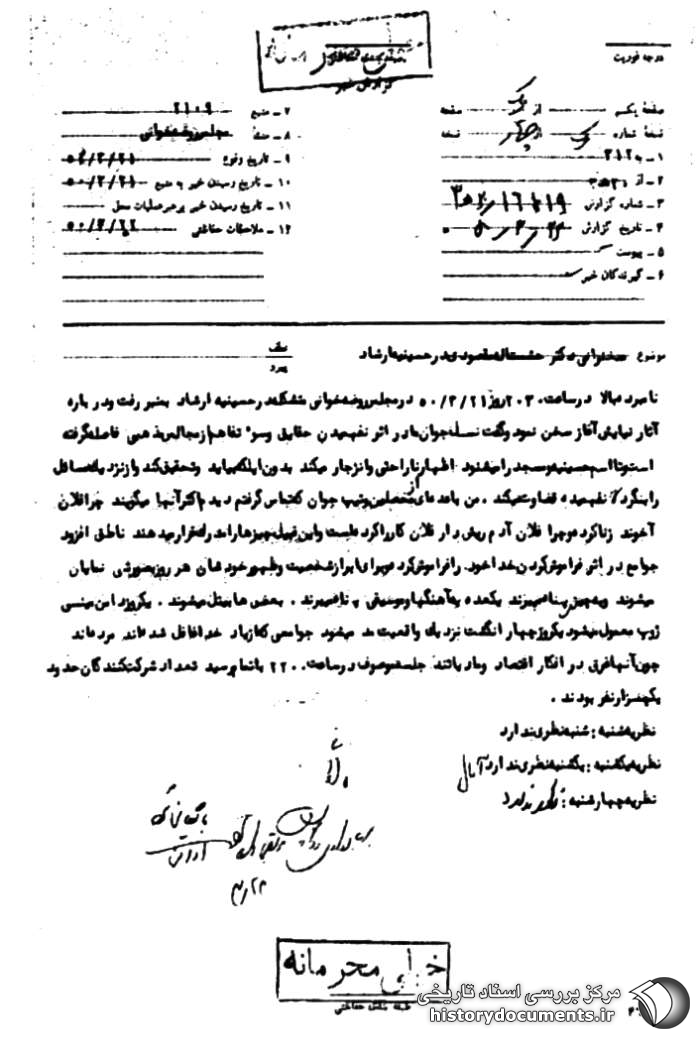 درجه فوریت
گزارش خبر
صفحه یکم از یک صفحه
نسخه شماره یک از چهار نسخه
۱ ـ به ۳۱۲
۲ ـ از
۳ ـ شماره گزارش
۴ ـ تاریخ گزارش
۵ ـ پیوست
۶ ـ گیرندگان خبر
۷ ـ منبع ۲۱۰۹
۸ ـ منشاء مجلس روضه‌خوانی
۹ ـ تاریخ وقوع ۵۰/۳/۲۱
۱۰ ـ تاریخ رسیدن خبر به منبع ۵۰/۳/۲۱
۱۱ ـ تاریخ رسیدن خبر برهبر عملیات محل
۱۲ ـ ملاحظات حفاظتی
موضوع سخنرانی دکتر در حسینیه ارشاد
عطف
پیرو
نامبرده بالا در ساعت ۲۰۳۰ روز ۵۰/۳/۲۱ در مجلس روضه‌خوانی متشکله در حسینیه ارشاد بمنبر رفت و درباره
آثار نیایش آغاز سخن نمود و گفت نسل جوان ما در اثر نفهمیدن حقایق و سوء تفاهم از مجالس مذهبی فاصله گرفته
است و تا اسم حسینیه و مسجد را میشنود اظهار ناراحتی و انزجار میکند بدون اینکه بیاید و تحقیق کند و از نزدیک مسائل
را بنگرد نفهمیده قضاوت میکند . من با عده‌ای از محصلین و تیپ جوان که تماس گرفتم دیدم اکثر آنها میگویند چرا فلان
آخوند زنا کرد و چرا فلان آدم ریش‌دار فلان کار را کرده است و این قبیل چیزها را مدرک قرار میدهند ناطق افزود
جوامع در اثر فراموش کردن خدا خود را فراموش کرده و برای ابراز شخصیت و ظهور خودشان هر روز بصورتی نمایان
میشوند و به چیزی پناه میبرند یکعده به آهنگها و موسیقی پناه میبرند . بعضی‌ها بیتل میشوند . یکروز این مینی
ژوپ معمول میشود یکروز چهار انگشت نزدیک واقعیت مد میشود جوامعی که از یاد خدا غافل شده‌اند مرده‌اند
چون آنها غرق در افکار اقتصاد و مادیاتند جلسه موصوف در ساعت ۲۲۰۰ باتمام رسید تعداد شرکت‌کنندگان حدود
یکهزار نفر بودند .
نظریه شنبه : شنبه نظری ندارد
نظریه یکشنبه : یکشنبه نظری ندارد
نظریه چهارشنبه : نظری ندارد
خیلی محرمانه
طبقه بندی حفاظتی
مرکز بررسی اسناد تاریخی
historydocuments.ir